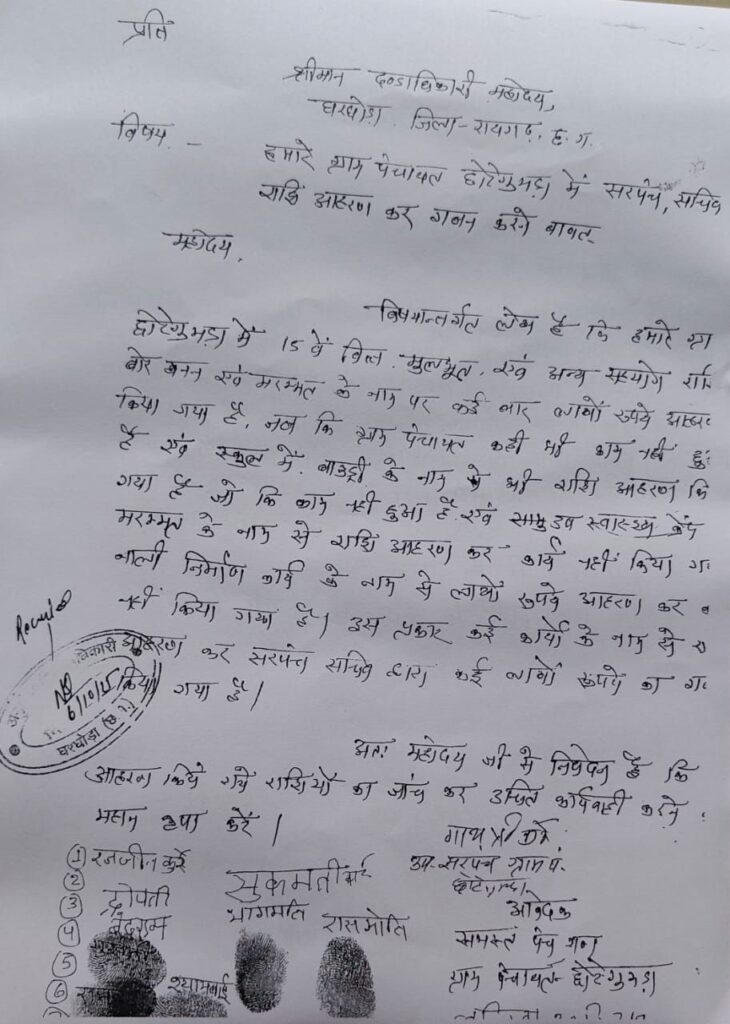 प्रति
श्रीमान दण्डाधिकारी महोदय,
घरघोड़ा जिला-रायगढ़, छ. ग.
विषय. -
हमारे ग्राम पंचायत छोटेगुमड़ा में सरपंच, सचिव
राशि आहरण कर गबन करने बाबत्
महोदय,
विषयान्तर्गत लेख है कि हमारे ग्रा
छोटेगुमड़ा में 15 वें वित्त, मुलभूत, एवं अन्य सहयोग राशि
बोर खनन एवं मरम्मत के नाम पर कई बार लाखों रूपये आहरण
किया गया है, जब कि ग्राम पंचायत कही भी काम नही हु
है एवं स्कुल में, बाउड्री के नाम से भी राशि आहरण कि
गया है जो कि काम नही हुआ है एवं स्वास्थ्य केंद
मरम्मत के नाम से राशि आहरण कर कार्य नहीं किया ग
नाली निर्माण कार्य के नाम से लाखों रूपये आहरण कर
नहीं किया गया है। इस प्रकार कई कार्यो के नाम से
आहरण कर सरपंच सचिव द्वारा कई लाखों रूपये का ग
किया गया है।
6/10/25
घरघोड़ा (छ.ग.)
अतः महोदय जी से निवेदन है कि
आहरण किये गये राशियों का जांच कर उचित कार्यवाही करने
महान कृपा करें।
① रनजीत कुर्रे
②
③ द्रोपती
④
⑤
⑥
सुकमती बाई
भागमति
रासमोति
श्यामबाई
उप-सरपंच ग्राम पं.
आवेदक
समस्त पंच गण
ग्राम पंचायत- छोटेगुमड़ा